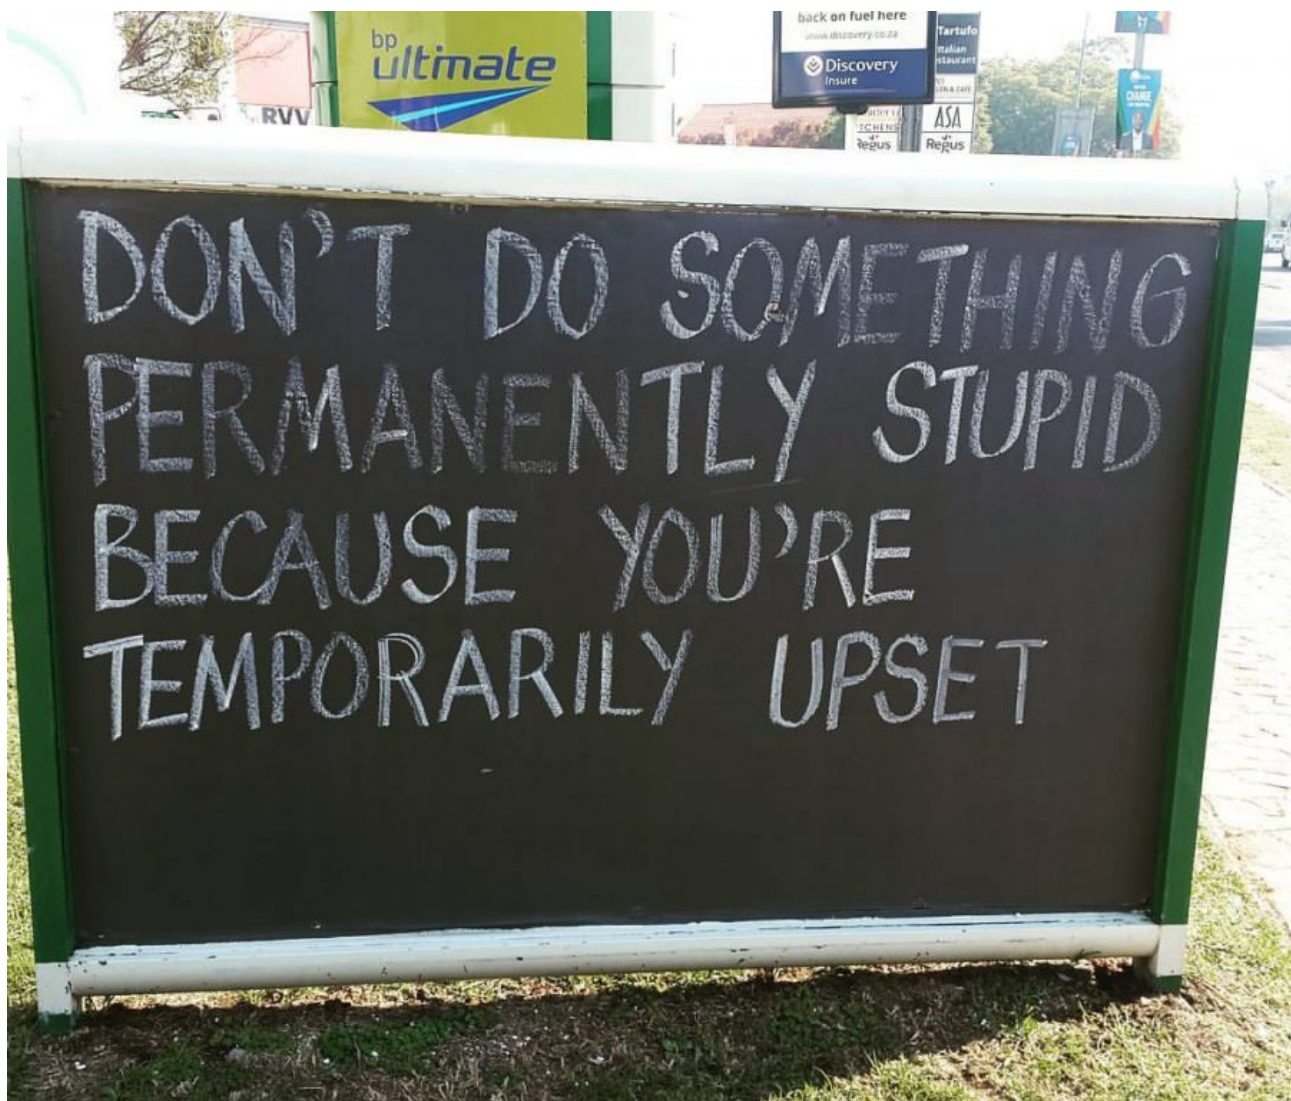 bp
ultimate
back on fuel here
www.discovery.co.za
Discovery
Insure
Tartufo
Italian
RVV
ASA
Regus
Regus
CHANGE
DON'T DO SOMETHING
PERMANENTLY STUPID
BECAUSE YOU'RE
TEMPORARILY UPSET